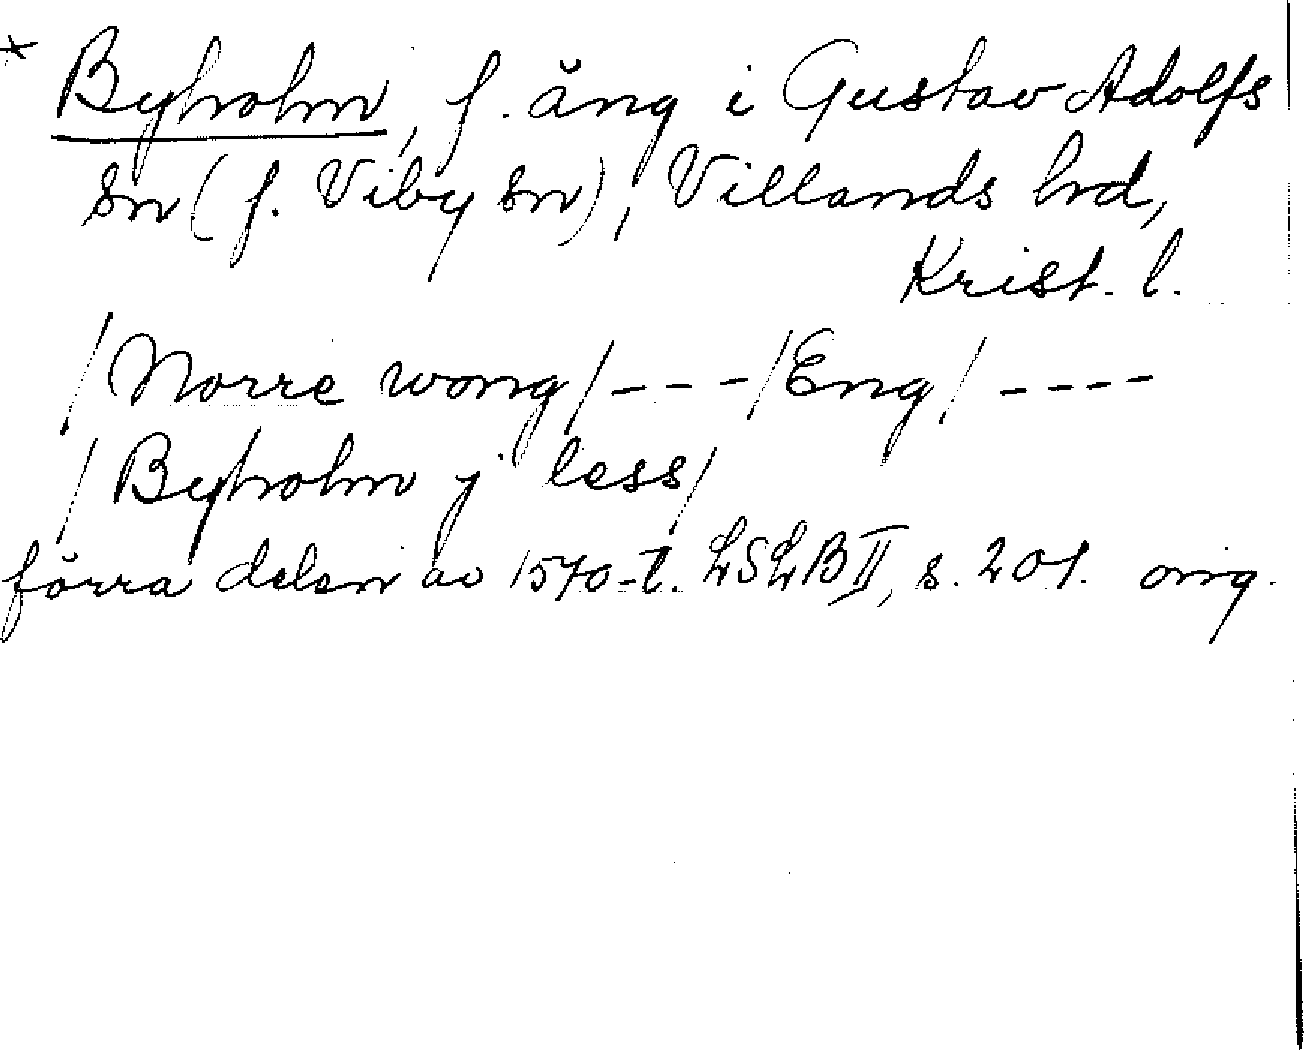 * Byholm, f. äng i Gustav Adolfs
sn (f. Viby sn), Villands hd,
Krist. l.
/Norre wong/ --- /Eng/ ----
/Byholm j less/
förra delen av 1570-t. LSLB II, s. 201. orig.